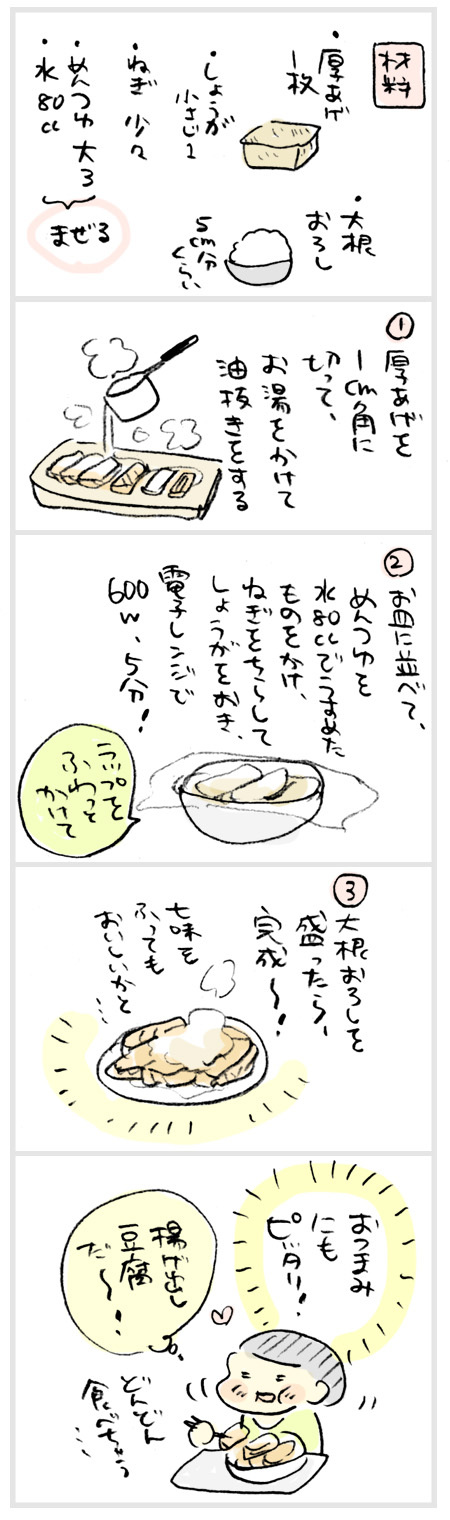 材料
・厚あげ
1枚
・しょうが
小さじ1
・ねぎ 少々
・めんつゆ 大3
・水80cc
まぜる
・大根
おろし
5cm分
くらい
①
厚あげを
1cm角に
切って、
お湯をかけて
油抜きをする
②
お皿に並べて、
めんつゆを
水80ccでうすめた
ものをかけ、
ねぎをちらして
しょうがをおき、
電子レンジで
600w、5分!
ラップを
ふわっと
かけて
③
大根おろしを
盛ったら、
完成〜!
七味を
ふっても
おいしいかと…
おつまみ
にも
ピッタリ!
揚げ出し
豆腐
だ〜!
どんどん
食べちゃう…